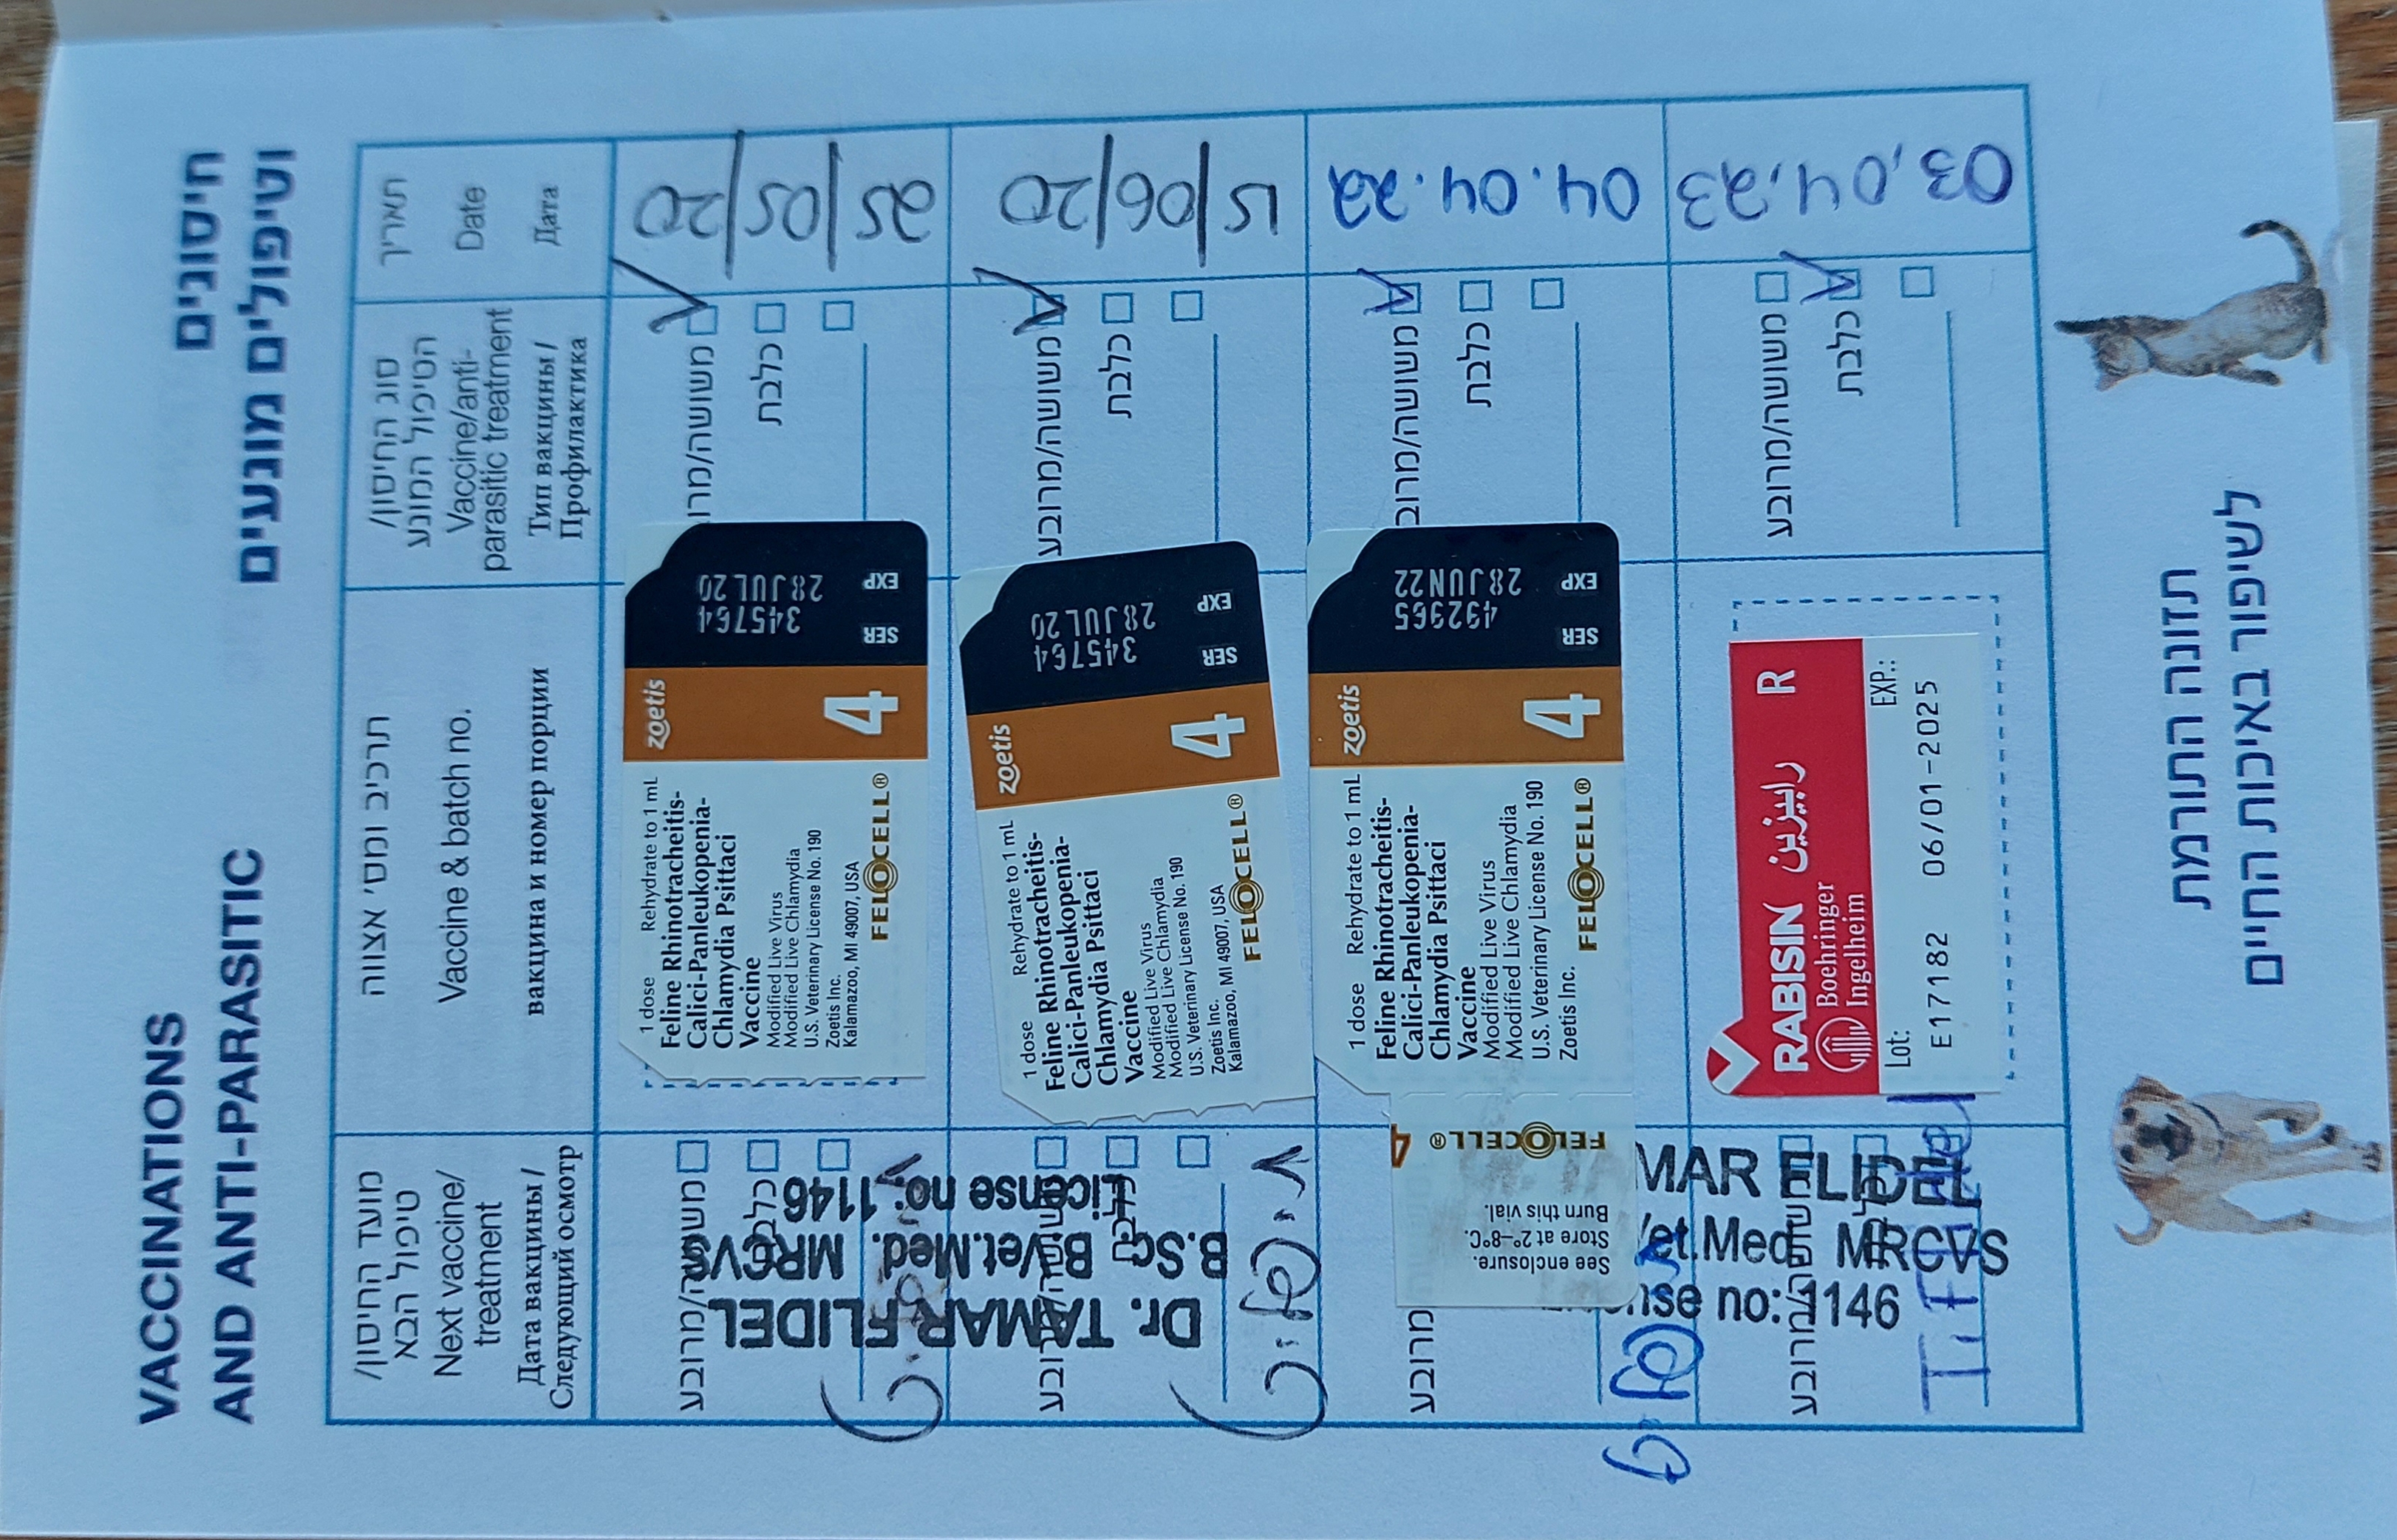 VACCINATIONS
AND ANTI-PARASITIC
חיסונים
וטיפולים מונעים
מועד החיסון/
טיפול הבא
Next vaccine/
treatment
Дата вакцины /
Следующий осмотр
תרכיב ומס' אצווה
Vaccine & batch no.
вакцина и номер порции
סוג החיסון/
הטיפול המונע
Vaccine/anti-
parasitic treatment
Тип вакцины /
Профилактика
תאריך
Date
Дата
25/05/20
משושה/מרו
כלבת
1 dose Rehydrate to 1 mL
Feline Rhinotracheitis-
Calici-Panleukopenia-
Chlamydia Psittaci
Vaccine
Modified Live Virus
Modified Live Chlamydia
U.S. Veterinary License No. 190
Zoetis Inc.
Kalamazoo, MI 49007, USA
FELOCELL®
zoetis
4
SER 345764
EXP 28JUL20
משושה/מרובע
כלבת
Dr. TAMAR FLIDEL
B.Sc. B.Vet.Med. MRCVS
License no: 1146
15/06/20
משושה/מרובע
כלבת
1 dose Rehydrate to 1 mL
Feline Rhinotracheitis-
Calici-Panleukopenia-
Chlamydia Psittaci
Vaccine
Modified Live Virus
Modified Live Chlamydia
U.S. Veterinary License No. 190
Zoetis Inc.
Kalamazoo, MI 49007, USA
FELOCELL®
zoetis
4
SER 345764
EXP 28JUL20
משושה/מרובע
04.04.22
משושה/מרוב
כלבת
1 dose Rehydrate to 1 mL
Feline Rhinotracheitis-
Calici-Panleukopenia-
Chlamydia Psittaci
Vaccine
Modified Live Virus
Modified Live Chlamydia
U.S. Veterinary License No. 190
Zoetis Inc.
FELOCELL®
zoetis
4
SER 492965
EXP 28JUN22
See enclosure.
Store at 2°–8°C.
Burn this vial.
FELOCELL® 4
מרובע
03.04.23
משושה/מרובע
כלבת
RABISIN رابيزين R
Boehringer
Ingelheim
Lot: EXP.:
E17182 06/01-2025
משושה/מרובע
MAR FLIDEL
Vet.Med. MRCVS
nse no: 1146
תזונה התורמת
לשיפור באיכות החיים